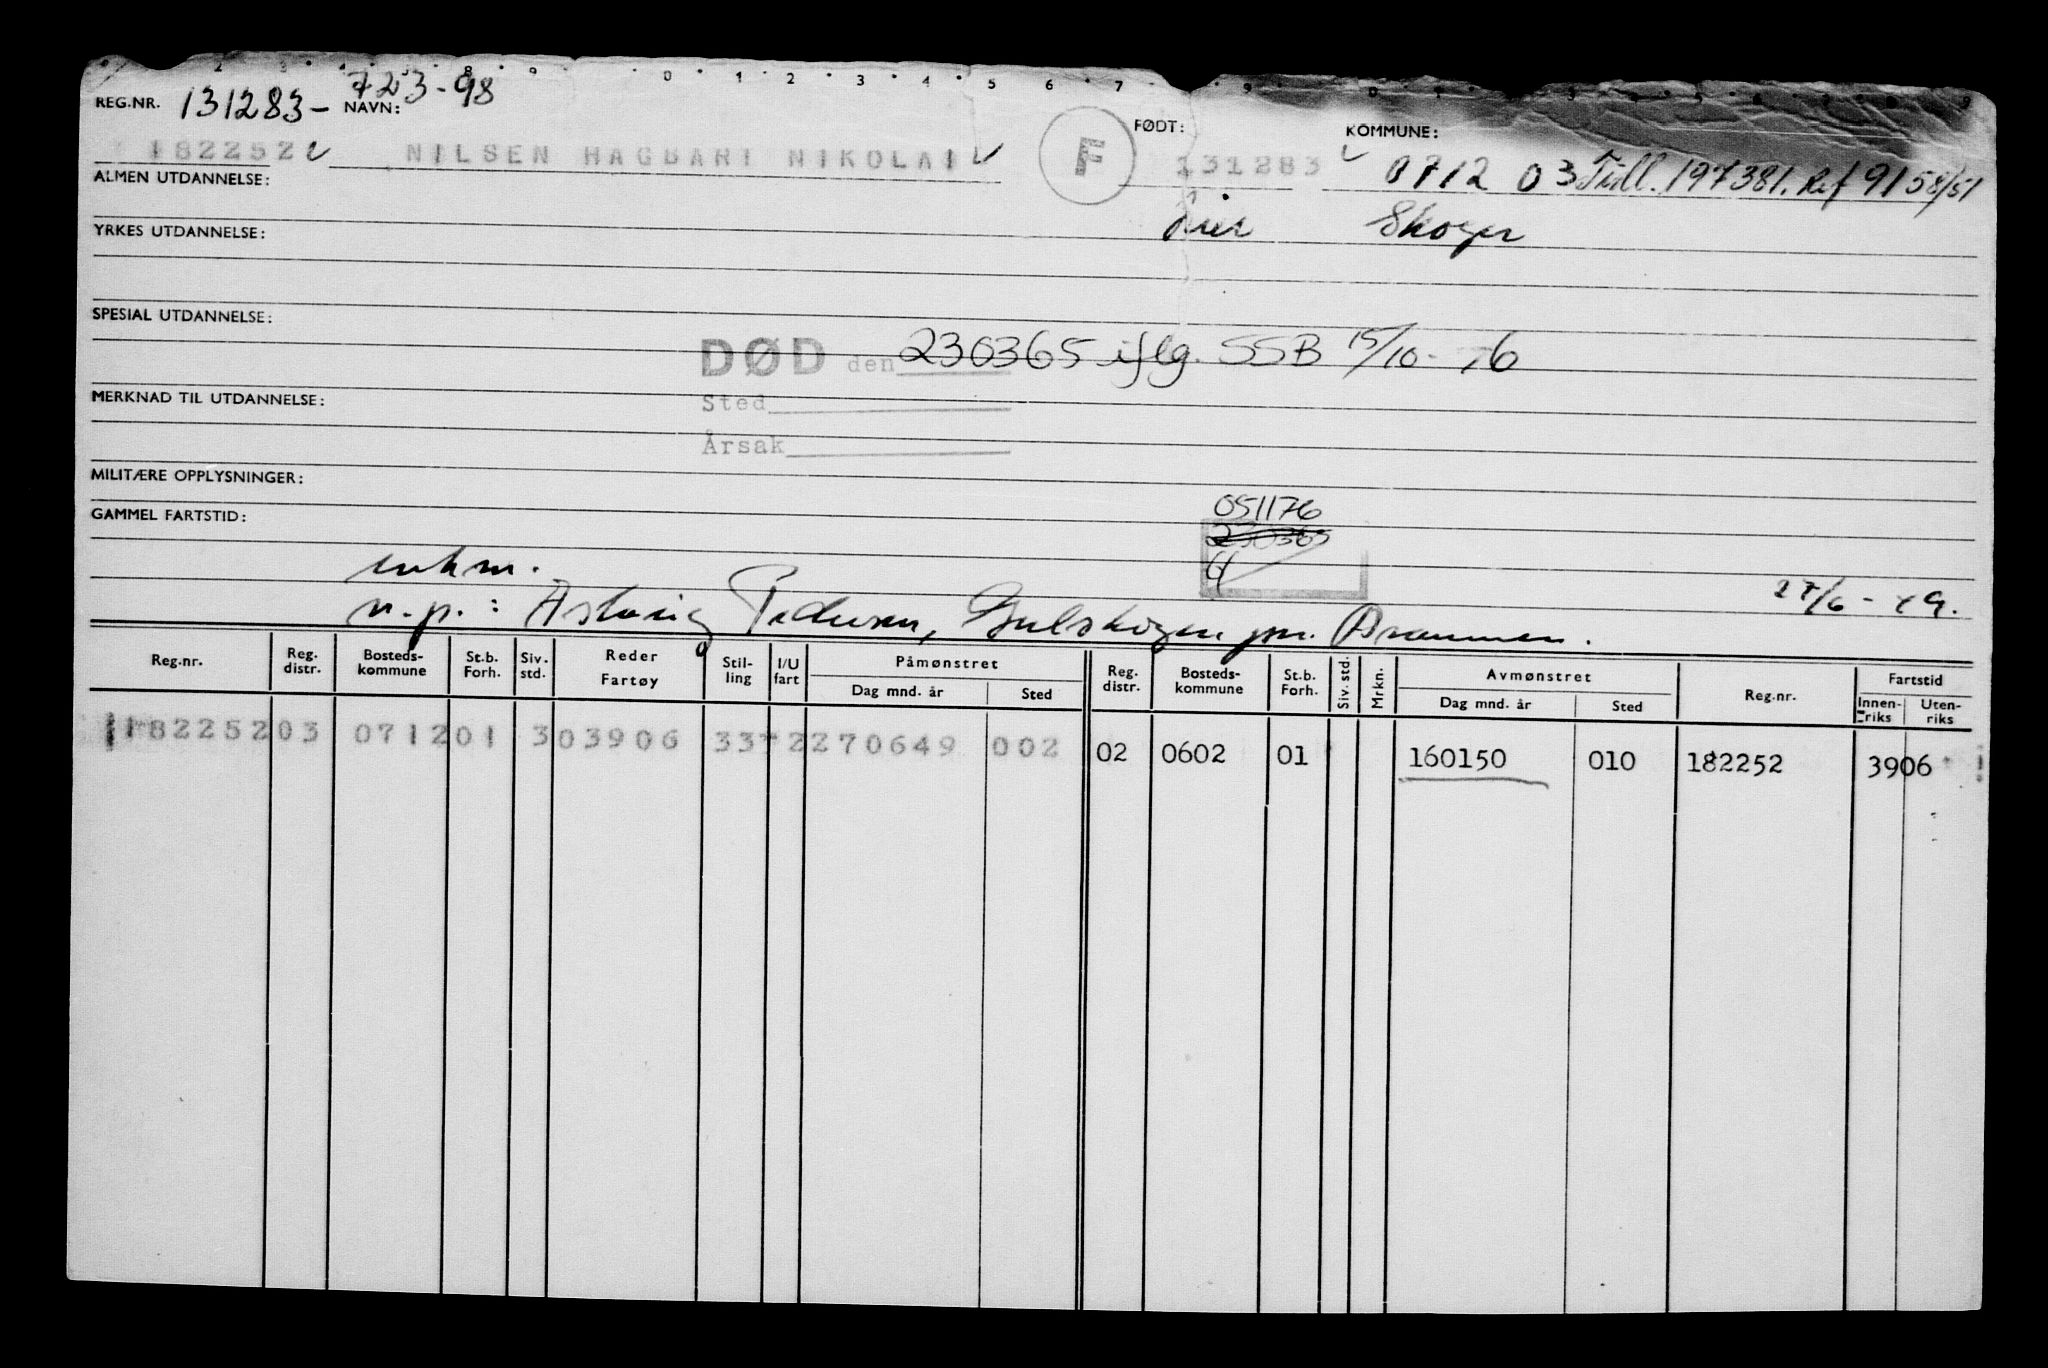 2 3 8 9 0 1 2 3 4 5 6 7 9
REG.NR. 131283- NAVN: 723-98 FØDT: KOMMUNE:
182252 NILSEN HAGBART NIKOLAI F 131283 0712 03 Tidl. 197381. Ref 9158/51
ALMEN UTDANNELSE:
Lier Skoger
YRKES UTDANNELSE:
SPESIAL UTDANNELSE:
DØD den 230365 iflg. SSB 15/10-76
MERKNAD TIL UTDANNELSE:
Sted
Årsak
MILITÆRE OPPLYSNINGER:
051176
GAMMEL FARTSTID:
230365
enkm. 27/6-49.
n.p.: Aslaug Pedersen, Gulskogen pr. Drammen.
Reg.nr. Reg. distr. Bosteds- kommune St.b. Forh. Siv. std. Reder Fartøy Stil- ling I/U fart Påmønstret Dag mnd. år Sted Reg. distr. Bosteds- kommune St.b. Forh. Siv. std. Mrkn. Avmønstret Dag mnd. år Sted Reg.nr. Fartstid Innen- riks Uten- riks
182252 03 0712 01 3 03906 33 2 270649 002 02 0602 01 160150 010 182252 3906